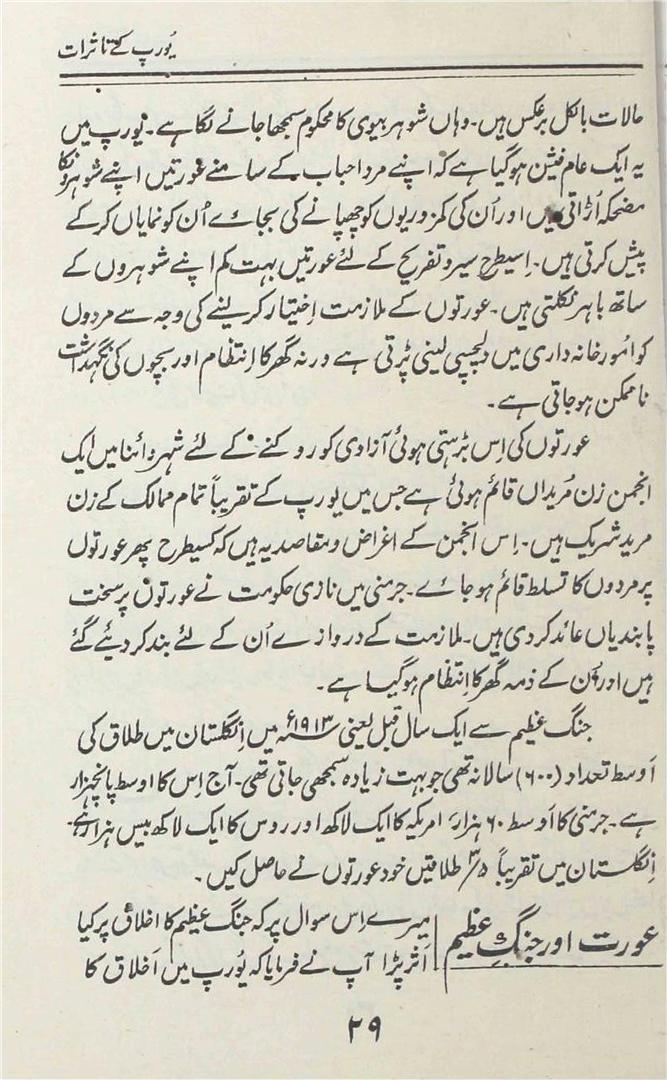 یُورپ کے تاثرات
حالات بالکل برعکس ہیں۔ وہاں شوہر بیوی کا محکوم سمجھا جانے لگا ہے۔ یورپ میں
یہ ایک عام فیشن ہوگیا ہے کہ اپنے مرد احباب کے سامنے عورتیں اپنے شوہرونکا
مضحکہ اُڑاتی ہیں اور اُن کی کمزوریوں کو چھپانے کی بجائے اُن کو نمایاں کرکے
پیش کرتی ہیں۔ اِسیطرح سیر و تفریح کے لئے عورتیں بہت کم اپنے شوہروں کے
ساتھ باہر نکلتی ہیں۔ عورتوں کے ملازمت اِختیار کرلینے کی وجہ سے مردوں
کو اُمور خانہ داری میں دلچسپی لینی پڑتی ہے ورنہ گھر کا اِنتظام اور بچوں کی نگہداشت
ناممکن ہوجاتی ہے۔
عورتوں کی اِس بڑہتی ہوئی آزادی کو روکنے کے لئے شہر وائنا میں ایک
انجمن زن مُریداں قائم ہوئی ہے جس میں یورپ کے تقریباً تمام ممالک کے زن
مرید شریک ہیں۔ اِس انجمن کے اغراض و مقاصد یہ ہیں کہ کسیطرح پھر عورتوں
پر مردوں کا تسلط قائم ہوجائے۔ جرمنی میں نازی حکومت نے عورتوں پر سخت
پابندیاں عائد کردی ہیں۔ ملازمت کے دروازے اُن کے لئے بند کردیئے گئے
ہیں اور اُن کے ذمہ گھر کا اِنتظام ہوگیا ہے۔
جنگ عظیم سے ایک سال قبل یعنی ۱۹۱۳ء میں اِنگلستان میں طلاق کی
اَوسط تعداد (۶۰۰) سالانہ تھی جو بہت زیادہ سمجھی جاتی تھی۔ آج اِس کا اوسط پانچہزار
ہے۔ جرمنی کا اَوسط ۶۰ ہزار، امریکہ کا ایک لاکھ اور روس کا ایک لاکھ بیس ہزار ہے۔
اِنگلستان میں تقریباً ۳/۵ طلاقیں خود عورتوں نے حاصل کیں۔
عورت اور جنگِ عظیم
میرے اس سوال پر کہ جنگ عظیم کا اخلاق پر کیا
اَثر پڑا آپ نے فرمایا کہ یُورپ میں اَخلاق کا
۲۹